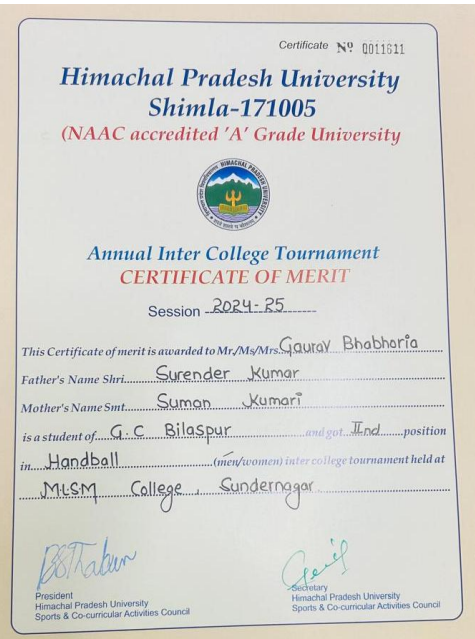 Certificate Nº 0011611
Himachal Pradesh University
Shimla-171005
(NAAC accredited 'A' Grade University
HIMACHAL PRADESH UNIVERSITY
Annual Inter College Tournament
CERTIFICATE OF MERIT
Session 2024-25
This Certificate of merit is awarded to Mr./Ms/Mrs. Gaurav Bhabhoria
Father's Name Shri Surender Kumar
Mother's Name Smt Suman Kumari
is a student of G.C Bilaspur and got IInd position
in Handball (men/women) inter college tournament held at
M.L.S.M College, Sundernagar
President
Himachal Pradesh University
Sports & Co-curricular Activities Council
Secretary
Himachal Pradesh University
Sports & Co-curricular Activities Council